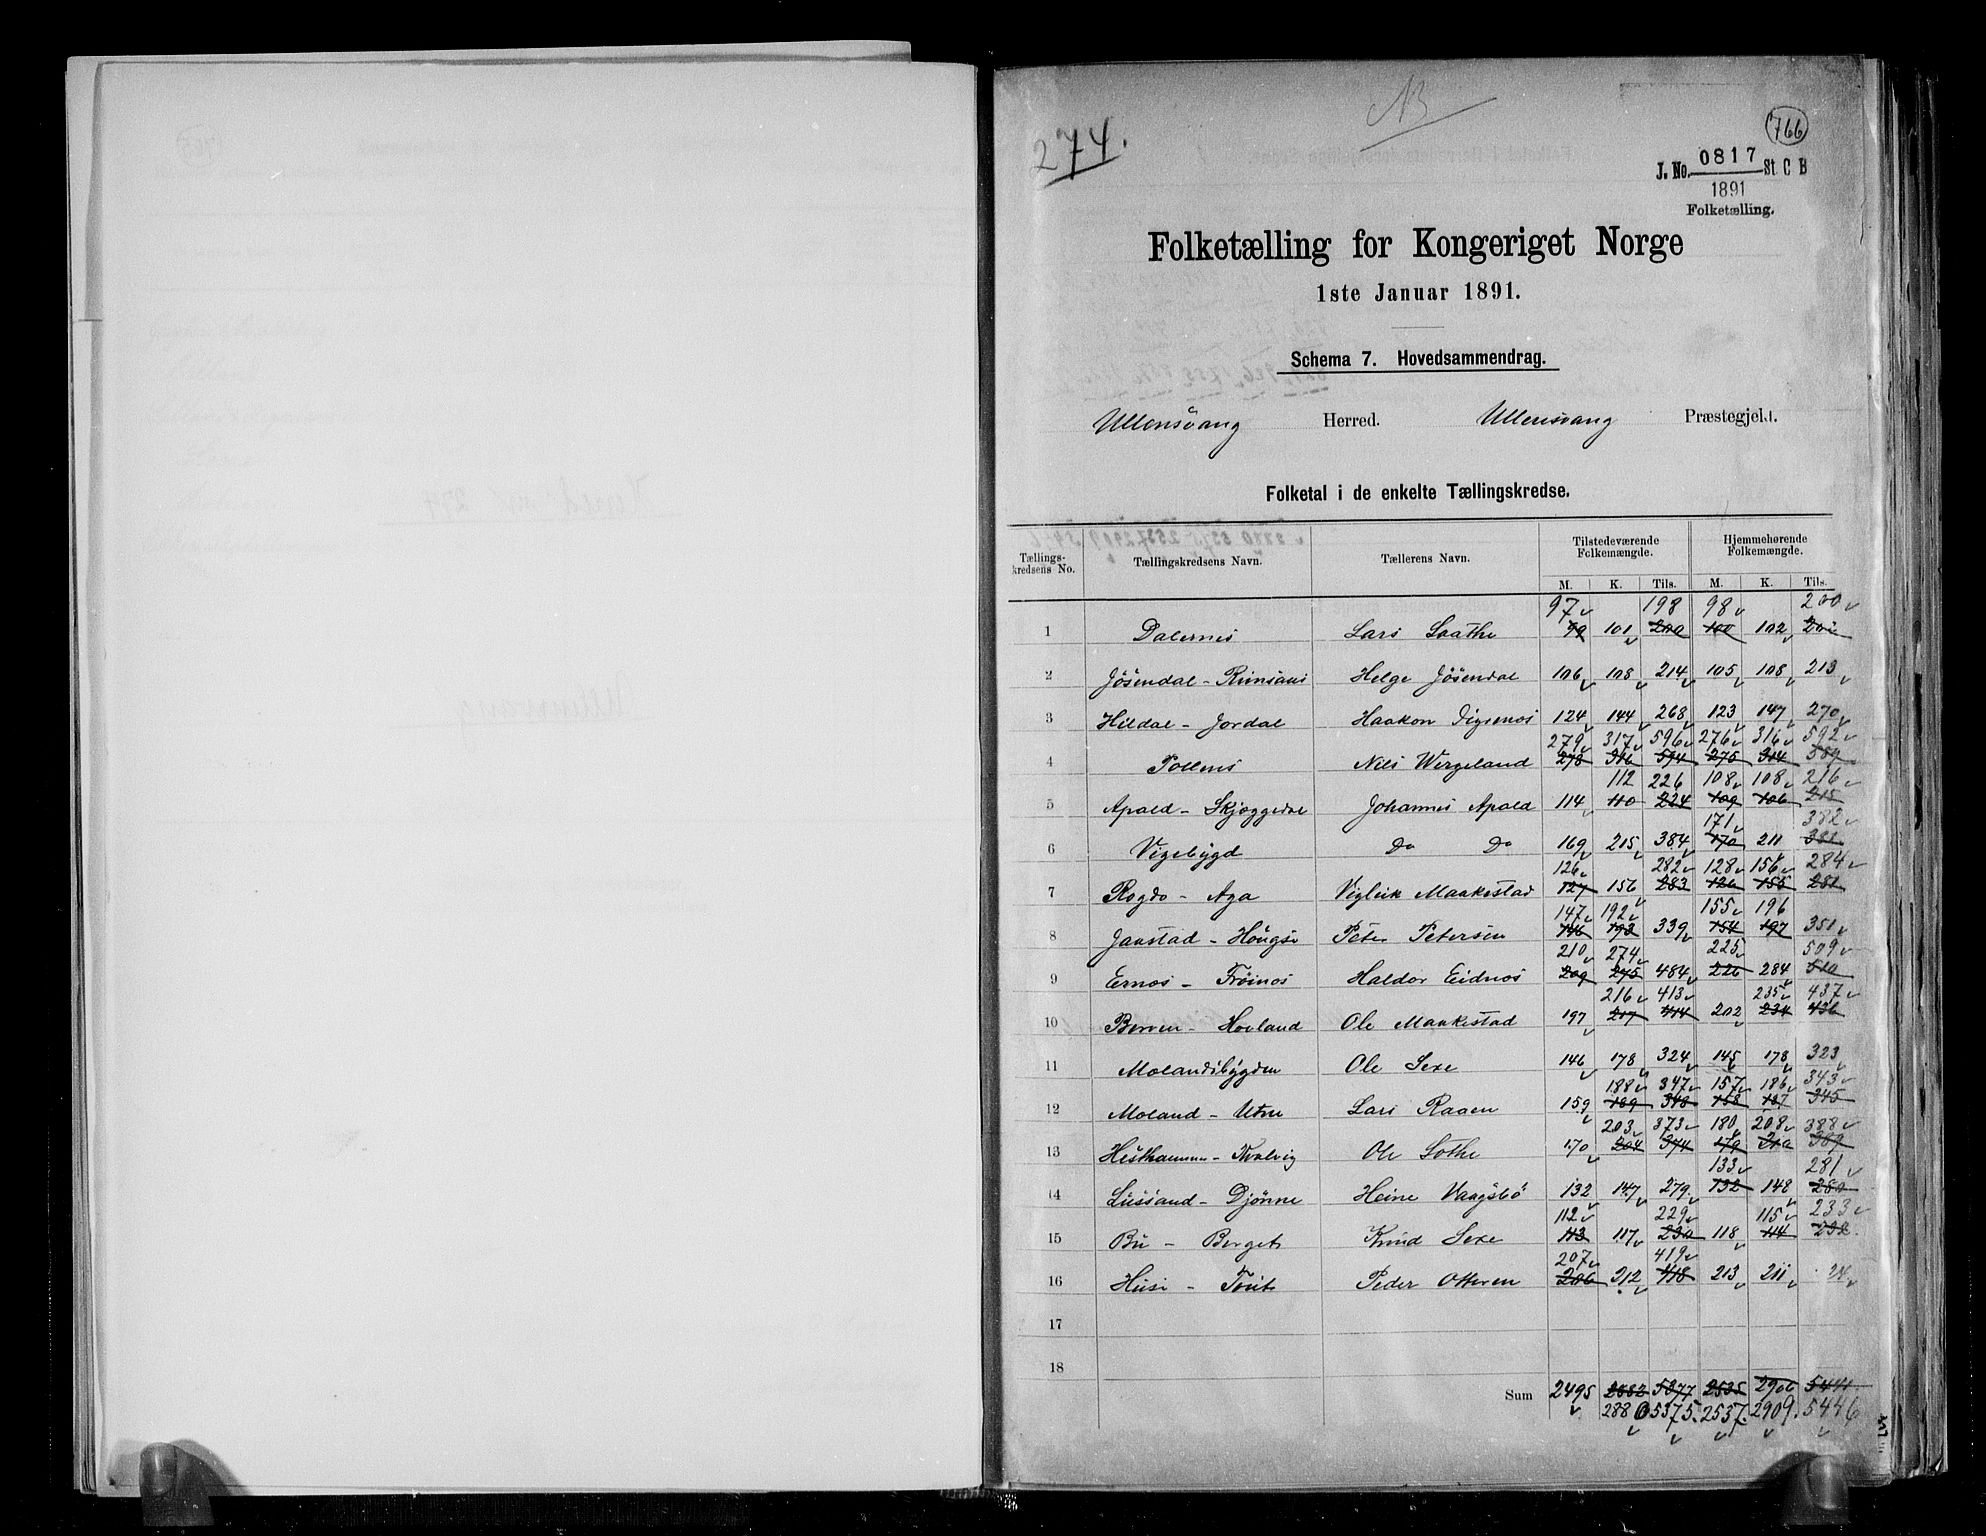 274.
NB
766
J. No. 0817 St. C B
1891
Folketælling.
Folketælling for Kongeriget Norge
1ste Januar 1891.
Schema 7. Hovedsammendrag.
Ullensvang Herred. Ullensvang Præstegjeld.
Folketal i de enkelte Tællingskredse.
Tællings-kredsens No. Tællingskredsens Navn. Tællerens Navn. Tilstedeværende Folkemængde. Hjemmehørende Folkemængde.
M. K. Tils. M. K. Tils.
97 198 98 200
1 Dalernes Lars Saathe 99 101 200 100 102 202
2 Jösendal - Helge Jösendal 106 108 214 105 108 213
3 Hildal - Jordal Haakon Digrenes 124 144 268 123 147 270
279 317 596 276 316 592
4 Tollens Nils Wergeland 278 316 594 275 314 589
112 226 108 108 216
5 Apald - Skjæggedal Johannes Apald 114 110 224 109 106 215
171 382
6 Vigebygd Do Do 169 215 384 170 211 381
126 282 128 156 284
7 Rogdo - Aga Vigleik Maakestad 127 156 283 126 155 281
147 192 155 196
8 Jaastad - Hougse Peter Petersen 146 193 339 154 197 351
210 274 225 509
9 Ernes - Fröines Haldor Eidnes 209 275 484 226 284 510
216 413 235 437
10 Berven - Hovland Ole Maakestad 197 217 414 202 234 436
11 Molandsbygden Ole Sexe 146 178 324 145 178 323
188 347 157 186 343
12 Moland - Utne Lars Raaen 159 189 348 158 187 345
203 373 180 208 388
13 Hesthammer - Kvalvig Ole Lothe 170 204 374 179 210 389
133 281
14 Lussand - Djönne Heine Vaagsbö 132 147 279 132 148 280
112 229 115 233
15 Bu - Berget Knud Sexe 113 117 230 118 114 232
207 419
16 Huse - Tveit Peder Otteren 206 212 418 213 211
17
18
Sum 2495 2882 5377 2535 2906 5441
2880 5375 2537 2909 5446